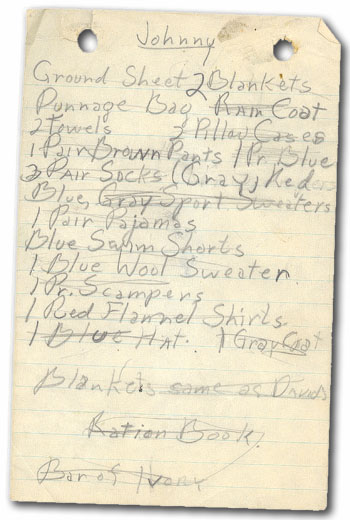 Johnny
Ground Sheet 2 Blankets
Dunnage Bag Rain Coat
2 Towels 3 Pillow Cases
1 Pair Brown Pants 1 Pr. Blue
3 Pair Socks (Gray, Red
Blue, Gray Sport Sweaters
1 Pair Pajamas
Blue Swim Shorts
1 Blue Wool Sweater
1 Pr. Scampers
1 Red Flannel Shirts.
1 Blue Hat. 1 Gray Coat
Blankets same as Davids
Ration Book,
Bar of Ivory